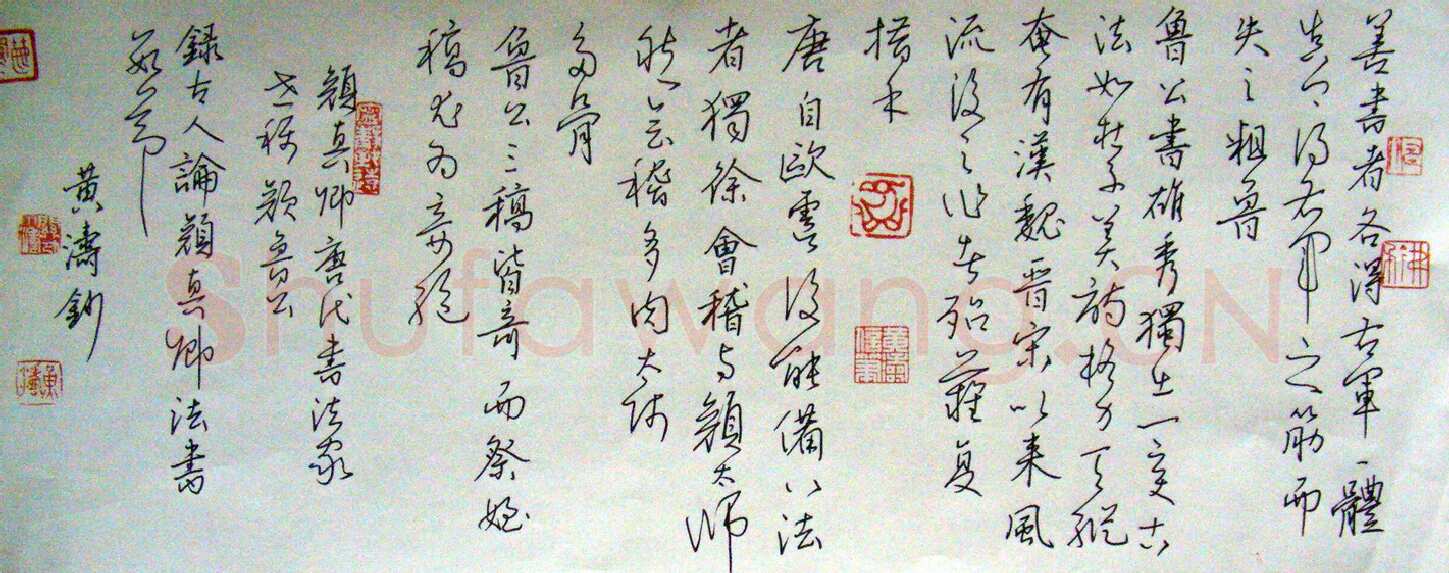 善書者各得右軍一體
真卿得右軍之筋而
失之粗魯
魯公書雄秀獨出一變古
法如杜子美詩格力天縱
奄有漢魏晉宋以來風
流後之作者殆難復
措手
唐自歐虞後能備八法
者獨徐會稽與顏太師
然會稽多肉太師
多骨
魯公三稿皆奇而祭姪
稿尤為奇絕
顏真卿唐代書法家
世稱顏魯公
錄古人論顏真卿法書
黃濤鈔
Shufawang.CN